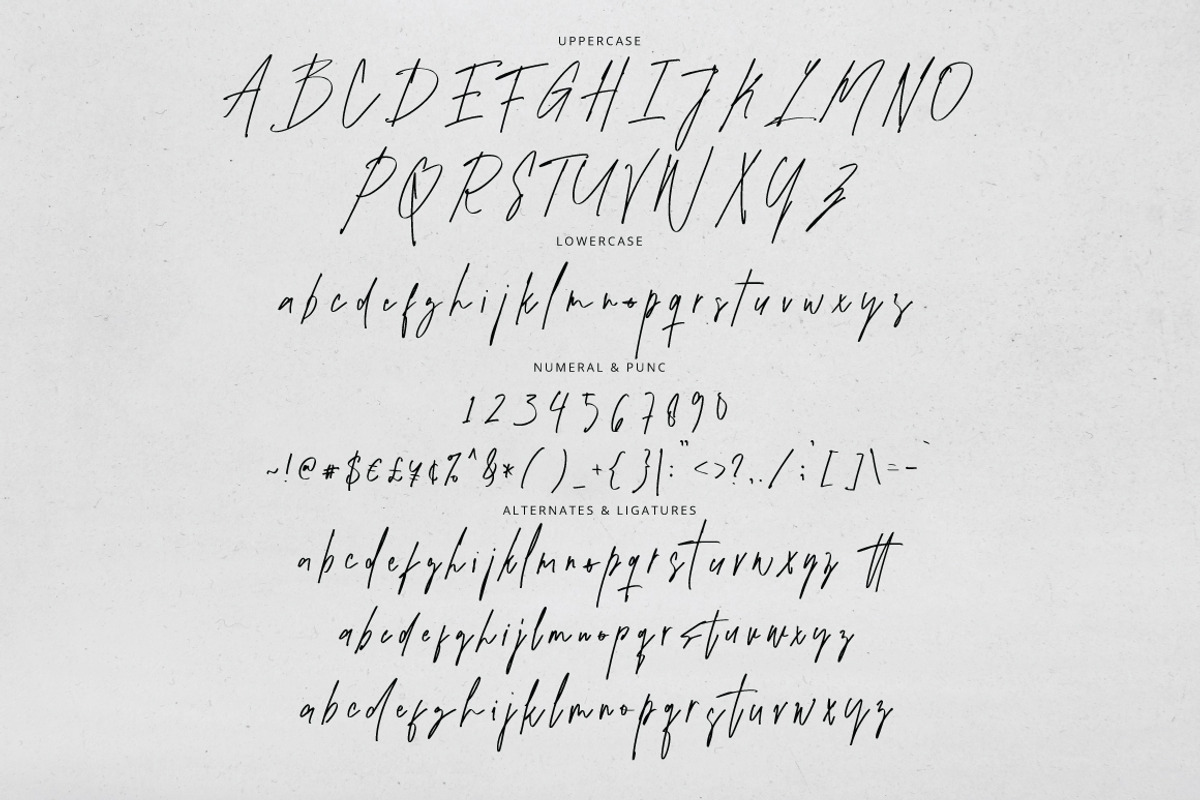 UPPERCASE
A B C D E F G H I J K L M N O
P Q R S T U V W X Y Z
LOWERCASE
a b c d e f g h i j k l m n o p q r s t u v w x y z
NUMERAL & PUNC
1 2 3 4 5 6 7 8 9 0
~ ! @ # $ € £ ¥ ¢ % ^ & * ( ) _ + { } | : " < > ? , . / ; ' [ ] \ = - `
ALTERNATES & LIGATURES
a b c d e f g h i j k l m n o p q r s t u v w x y z tt
a b c d e f g h i j l m n o p q r s t u v w x y z
a b c d e f g h i j k l m n o p q r s t u v w x y z